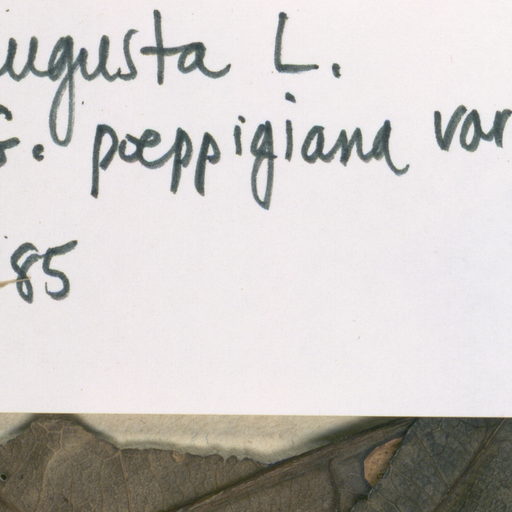 augusta L.
G. poeppigiana var
85